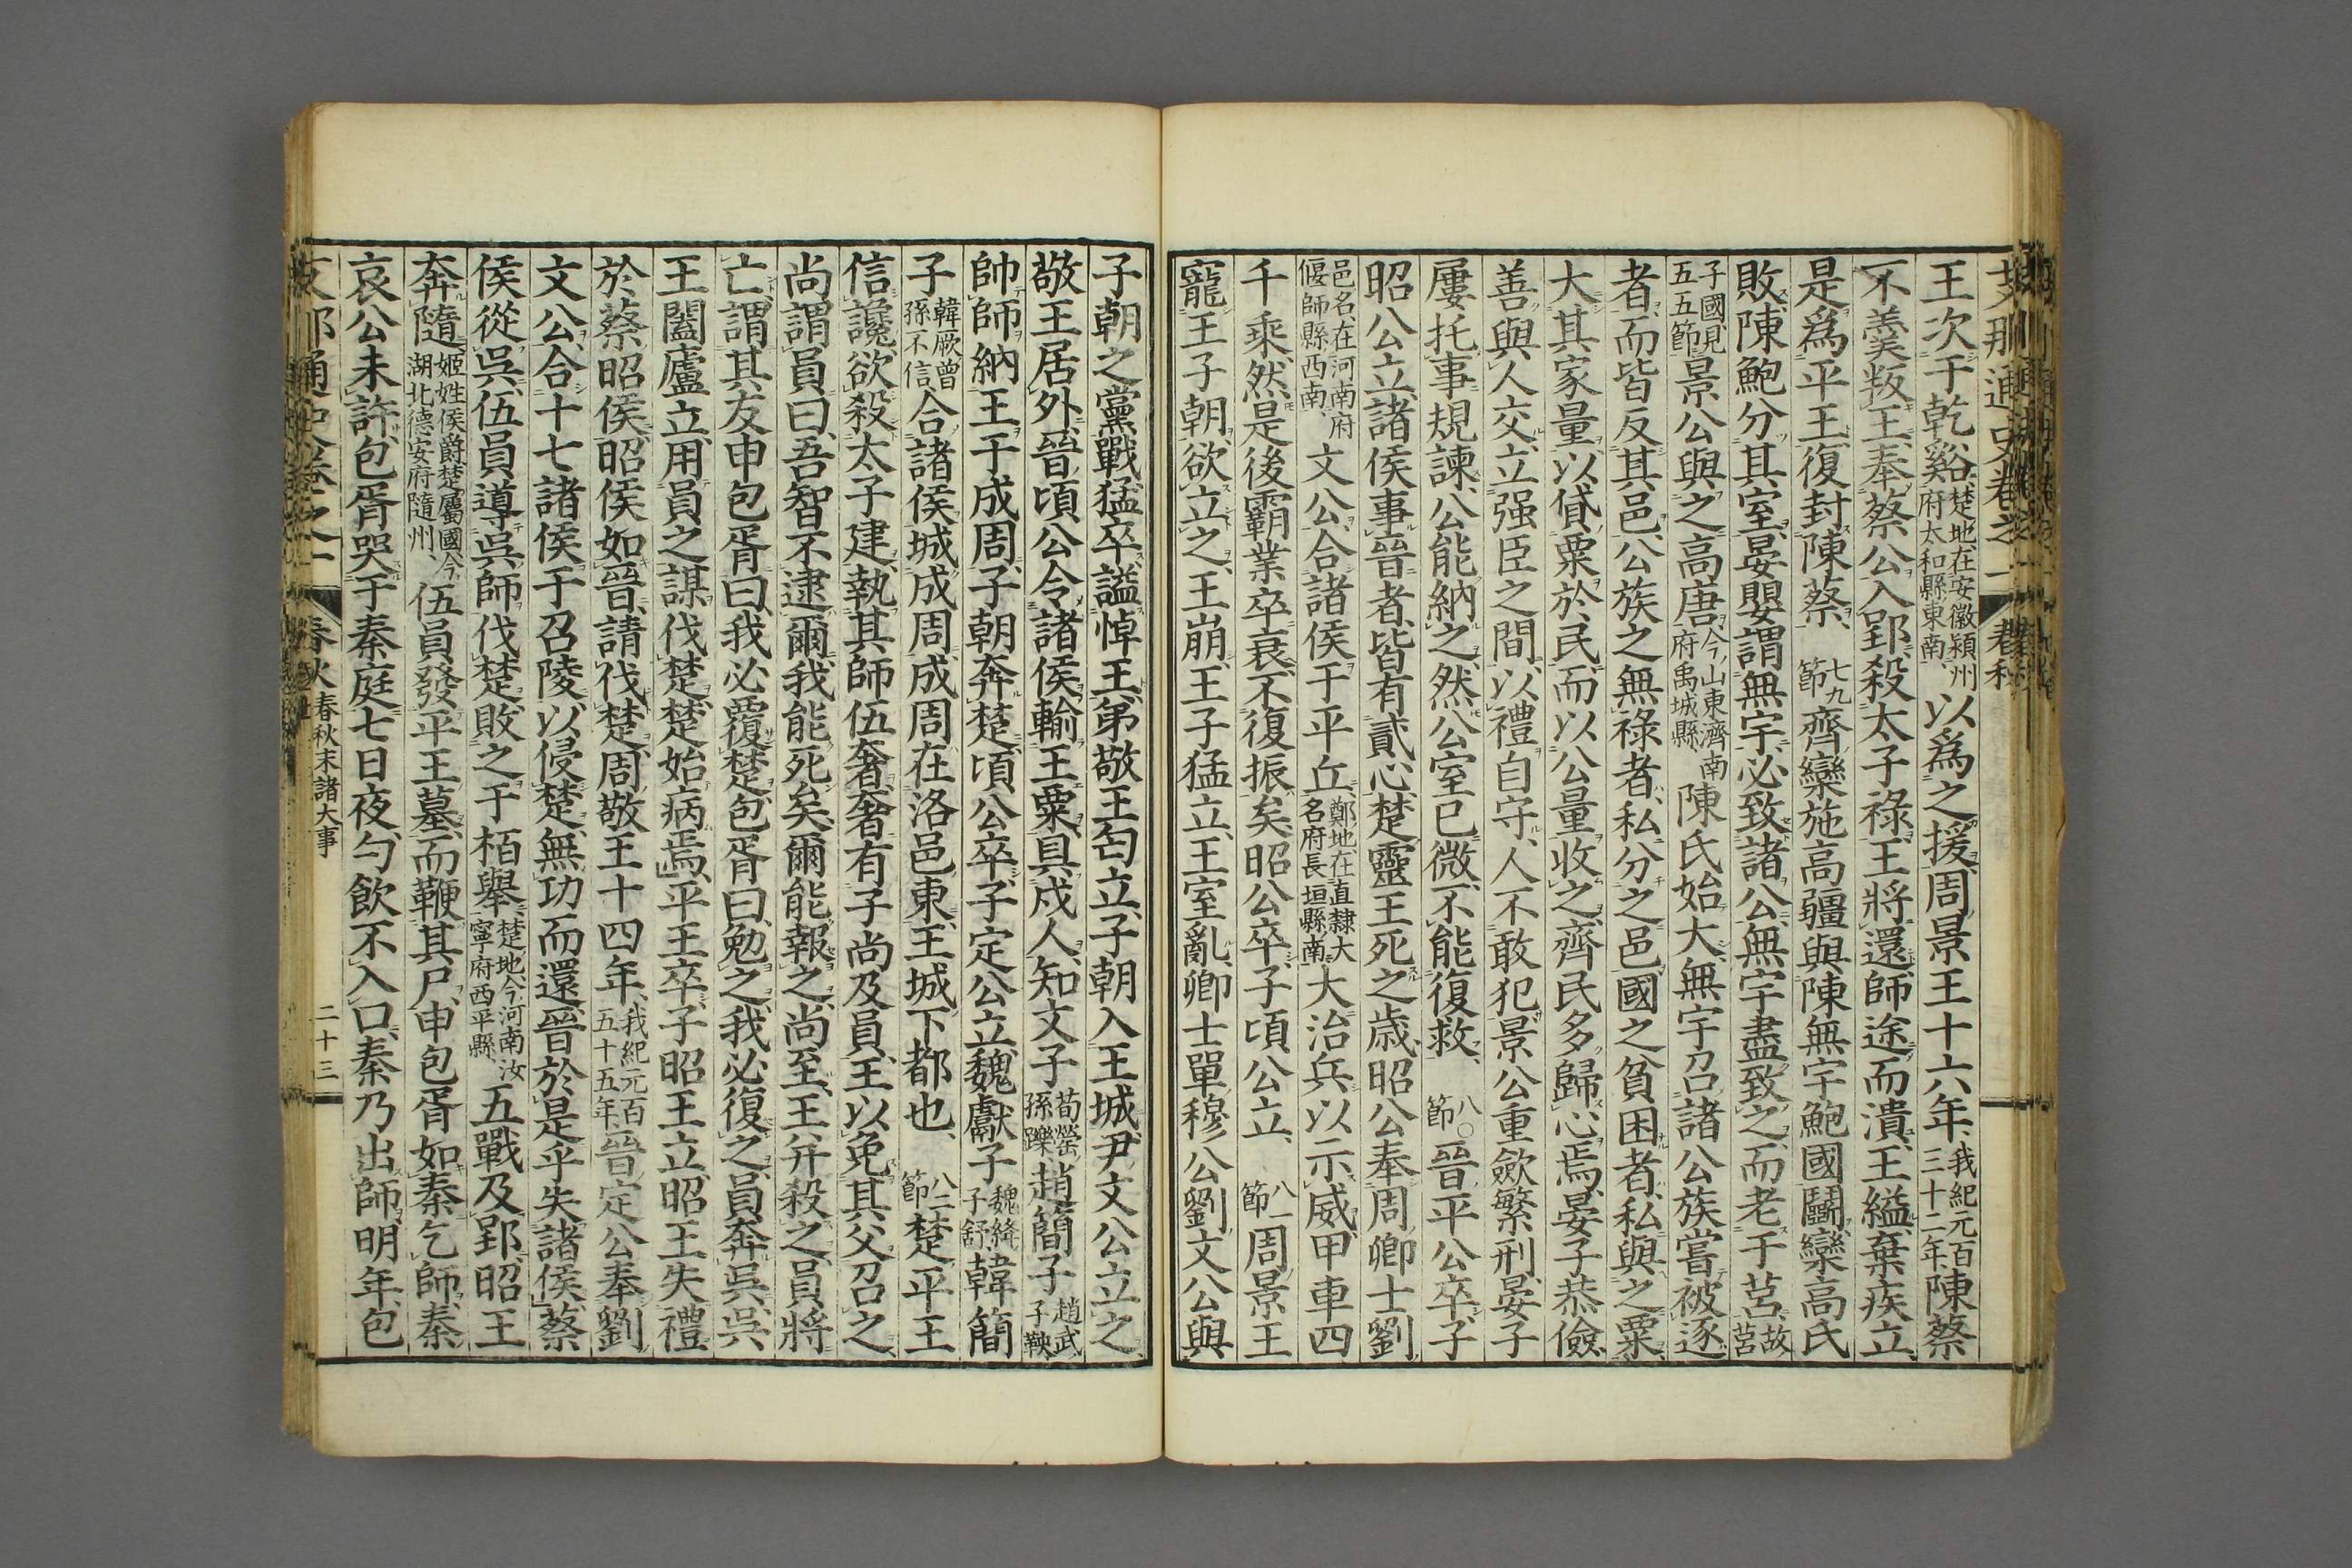 支那通史卷之一 春秋
王次于乾谿、楚地、在安徽潁州府太和縣東南、以爲之援、周景王十六年、我紀元百三十二年、陳蔡
不羹叛王、奉蔡公入郢、殺太子祿、王將還、師途而潰、王縊、棄疾立、
是爲平王、復封陳蔡、 七九節 齊欒施高彊與陳無宇鮑國鬭、欒高氏
敗、陳鮑分其室、晏嬰謂無宇、必致諸公、無宇盡致之、而老于莒、故莒
子國、見五五節 景公與之高唐、今山東濟南府禹城縣、陳氏始大、無宇召諸公族嘗被逐
者、而皆反其邑、公族之無祿者、私分之邑、國之貧困者、私與之粟、
大其家量、以貸粟於民、而以公量收之、齊民多歸心焉、晏子恭儉、
善與人交、立强臣之間、以禮自守、人不敢犯、景公重歛繁刑、晏子
屢托事規諫、公能納之、然公室已微、不能復救、 八〇節 晉平公卒、子
昭公立、諸侯事晉者、皆有貳心、楚靈王死之歲、昭公奉周卿士劉
邑名、在河南府偃師縣西南、文公、合諸侯于平丘、鄭地、在直隸大名府長垣縣南、大治兵以示威、甲車四
千乘、然是後霸業卒衰、不復振矣、昭公卒、子頃公立、 八一節 周景王
寵王子朝、欲立之、王崩、王子猛立、王室亂、卿士單穆公劉文公與
子朝之黨戰、猛卒、謚悼王、弟敬王匄立、子朝入王城、尹文公立之、
敬王居外、晉頃公令諸侯輸王粟具戍人、知文子 荀罃孫躒、趙簡子 趙武子鞅、
帥師納王于成周、子朝奔楚、頃公卒、子定公立、魏獻子 魏絳子舒、韓簡
子 韓厥曾孫不信、合諸侯城成周、成周在洛邑東、王城下都也、 八二節 楚平王
信讒欲殺太子建、執其師伍奢、奢有子尚及員、王以免其父召之、
尚謂員曰、吾智不逮爾、我能死矣、爾能報之、尚至、王幷殺之、員將
亡、謂其友申包胥曰、我必覆楚、包胥曰、勉之、我必復之、員奔吳、吳
王闔廬立、用員之謀伐楚、楚始病焉、平王卒、子昭王立、昭王失禮
於蔡昭侯、昭侯如晉、請伐楚、周敬王十四年、我紀元百五十五年、晉定公奉劉
文公、合十七諸侯于召陵、以侵楚、無功而還、晉於是乎失諸侯、蔡
侯從吳、伍員導吳師伐楚、敗之于栢舉、楚地、今河南汝寧府西平縣、五戰及郢、昭王
奔隨、姬姓侯爵、楚屬國、今湖北德安府隨州、伍員發平王墓、而鞭其尸、申包胥如秦乞師、秦
哀公未許、包胥哭于秦庭七日夜、勺飲不入口、秦乃出師、明年、包
支那通史卷之一 春秋 春秋末諸大事 二十三